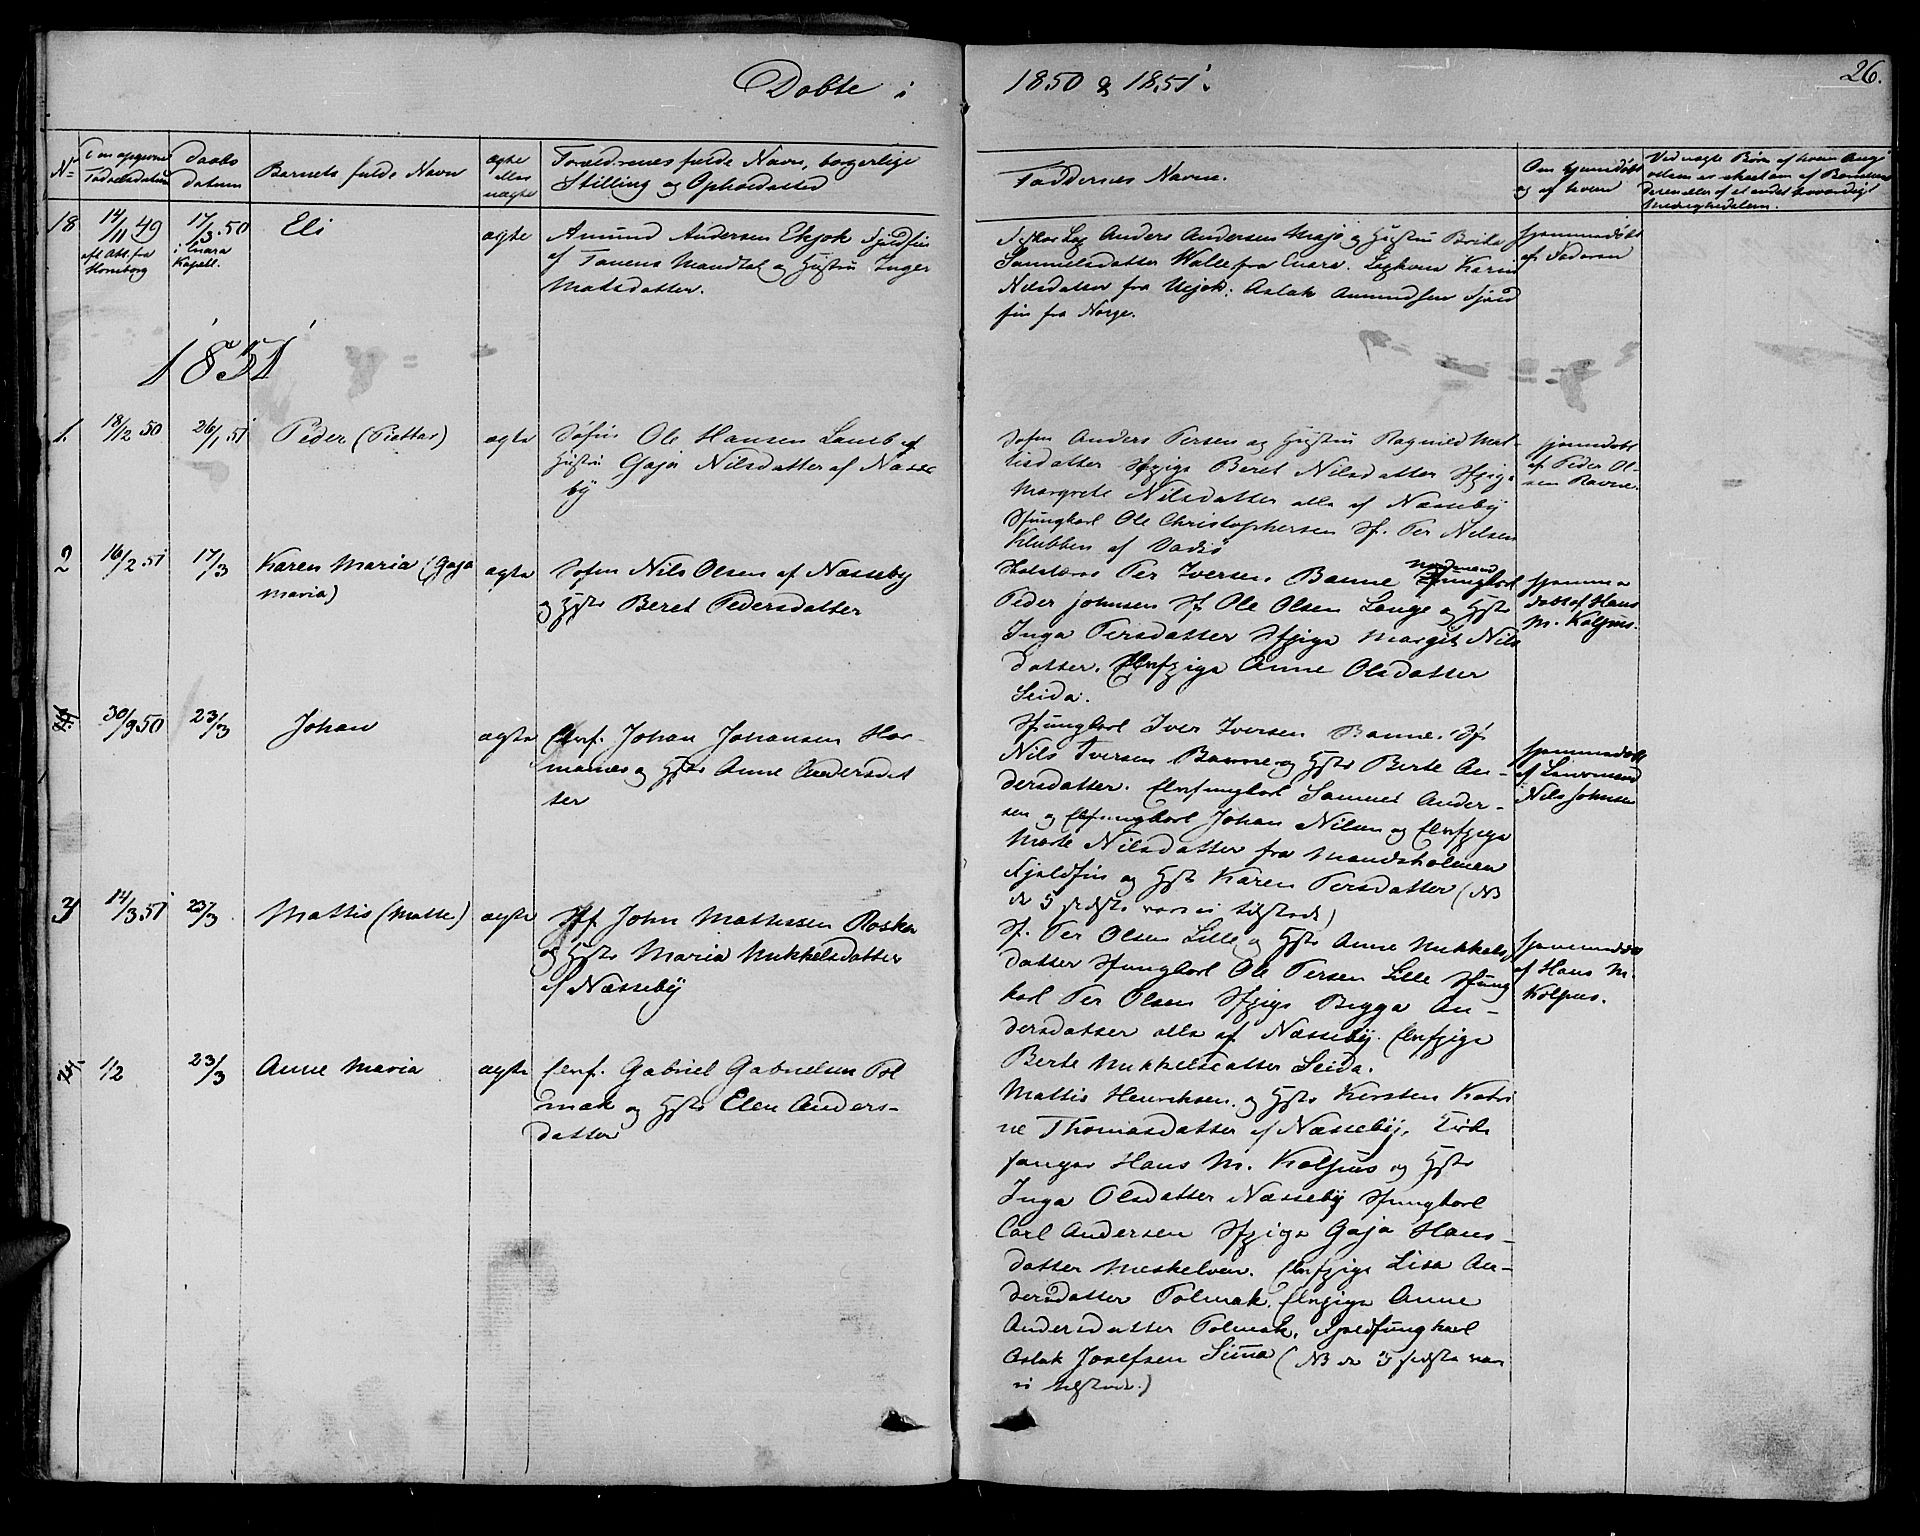 Døbte i
1850 & 1851.
26.
No
Fødselsdatum
Daabs
datum
Barnets fulde Navn
ægte
eller
uægte
Forældrenes fulde Navn, borgerlige
Stilling og Opholdssted
Faddernes Navne.
Om hjemmedøbt
og af hvem
18
14/11 49
17/3 50
Eli
ægte
Amund Andersen Ekjok Fjeldfin
af Tanens Mandtal og Hustru Inger
Matsdatter.
Lap Anders Andersen og Hustru Brita
Samuelsdatter Walle fra Enara. Karen
Nilsdatter fra Utsjok; Aslak Amundsen Fjeld
fin fra Norge.
hjemmedøbt
af Faderen
i Enara
Kapell.
1851
1.
18/12 50
26/1 51
Peder (Piettar)
ægte
Søfin Ole Hansen Lamb og
Hustru Gaja Nilsdatter af Næsse
by
Søfin Anders Persen og Hustru Ragnild Mat-
tisdatter Sfpige Beret Nilsdatter Sfpige
Margrete Nilsdatter alle af Næsseby
Sfungkarl Ole Christophersen Sf. Per Nilsen
Klubben af Vadsø
hjemmedøbt
af Peder Ol-
sen Ravne.
2
16/2 51
17/3
Karen Maria (Gaja
Maria)
ægte
Søfin Nils Olsen af Næsseby
og Hstr Beret Pedersdatter
Per Iversen Banne
Peder Johnsen Sf. Ole Olsen Lange og Hstr
Inga Persdatter Sfpige Margit Nils
datter. Elvfpige Anne Olsdatter
Seida.
hjemme
døbt af Hans
M. Kolpus.
30/9 50
23/3
Johan
ægte
Elvf. Johan Johansen Hor-
manes og Hstr Anne Andersdat
ter
Sfungkarl Iver Iversen Banne. Sf.
Nils Iversen Banne og Hstr Berte An-
dersdatter. Elvfungkarl Samuel Ander-
sen og Elvfungkarl Johan Nilsen og Elvfpige
Marte Nilsdatter fra Mandsholmen
Fjeldfin og Hstr Karen Persdatter (NB
de 5 sidste vare ei tilstede)
hjemmedøbt
af Lensmand
Nils Johnsen
3
14/3 51
23/3
Mattis (Matte)
ægte
Sf. John Mathisen Roska
og Hstr Maria Mikkelsdatter
af Næsseby
Sf. Per Olsen Lille og Hstr Anne Mikkels
datter Sfungkarl Ole Persen Lille Sfung
karl Per Olsen Sfpige Bigga An-
dersdatter alle af Næsseby. Elvfpige
Berte Mikkelsdatter Seida.
hjemmedøbt
af Hans M.
Kolpus.
1/2
23/3
Anne Maria
ægte
Elvf. Gabriel Gabrielsen Pol
mak og Hstr Elen Anders-
datter
Mattis Henriksen og Hstr Kersten Katri
ne Thomasdatter af Næsseby, Kirke
sanger Hans M. Kolpus og Hstr
Inga Olsdatter Næsseby Sfungkarl
Carl Andersen Sfpige Gaja Hans-
datter Meskelven. Elvfpige Lisa An-
dersdatter Polmak. Elvfpige Anne
Andersdatter Polmak. Fjeldfungkarl
Aslak Josefsen Sima (NB de 3 sidste var
ei tilstede.)